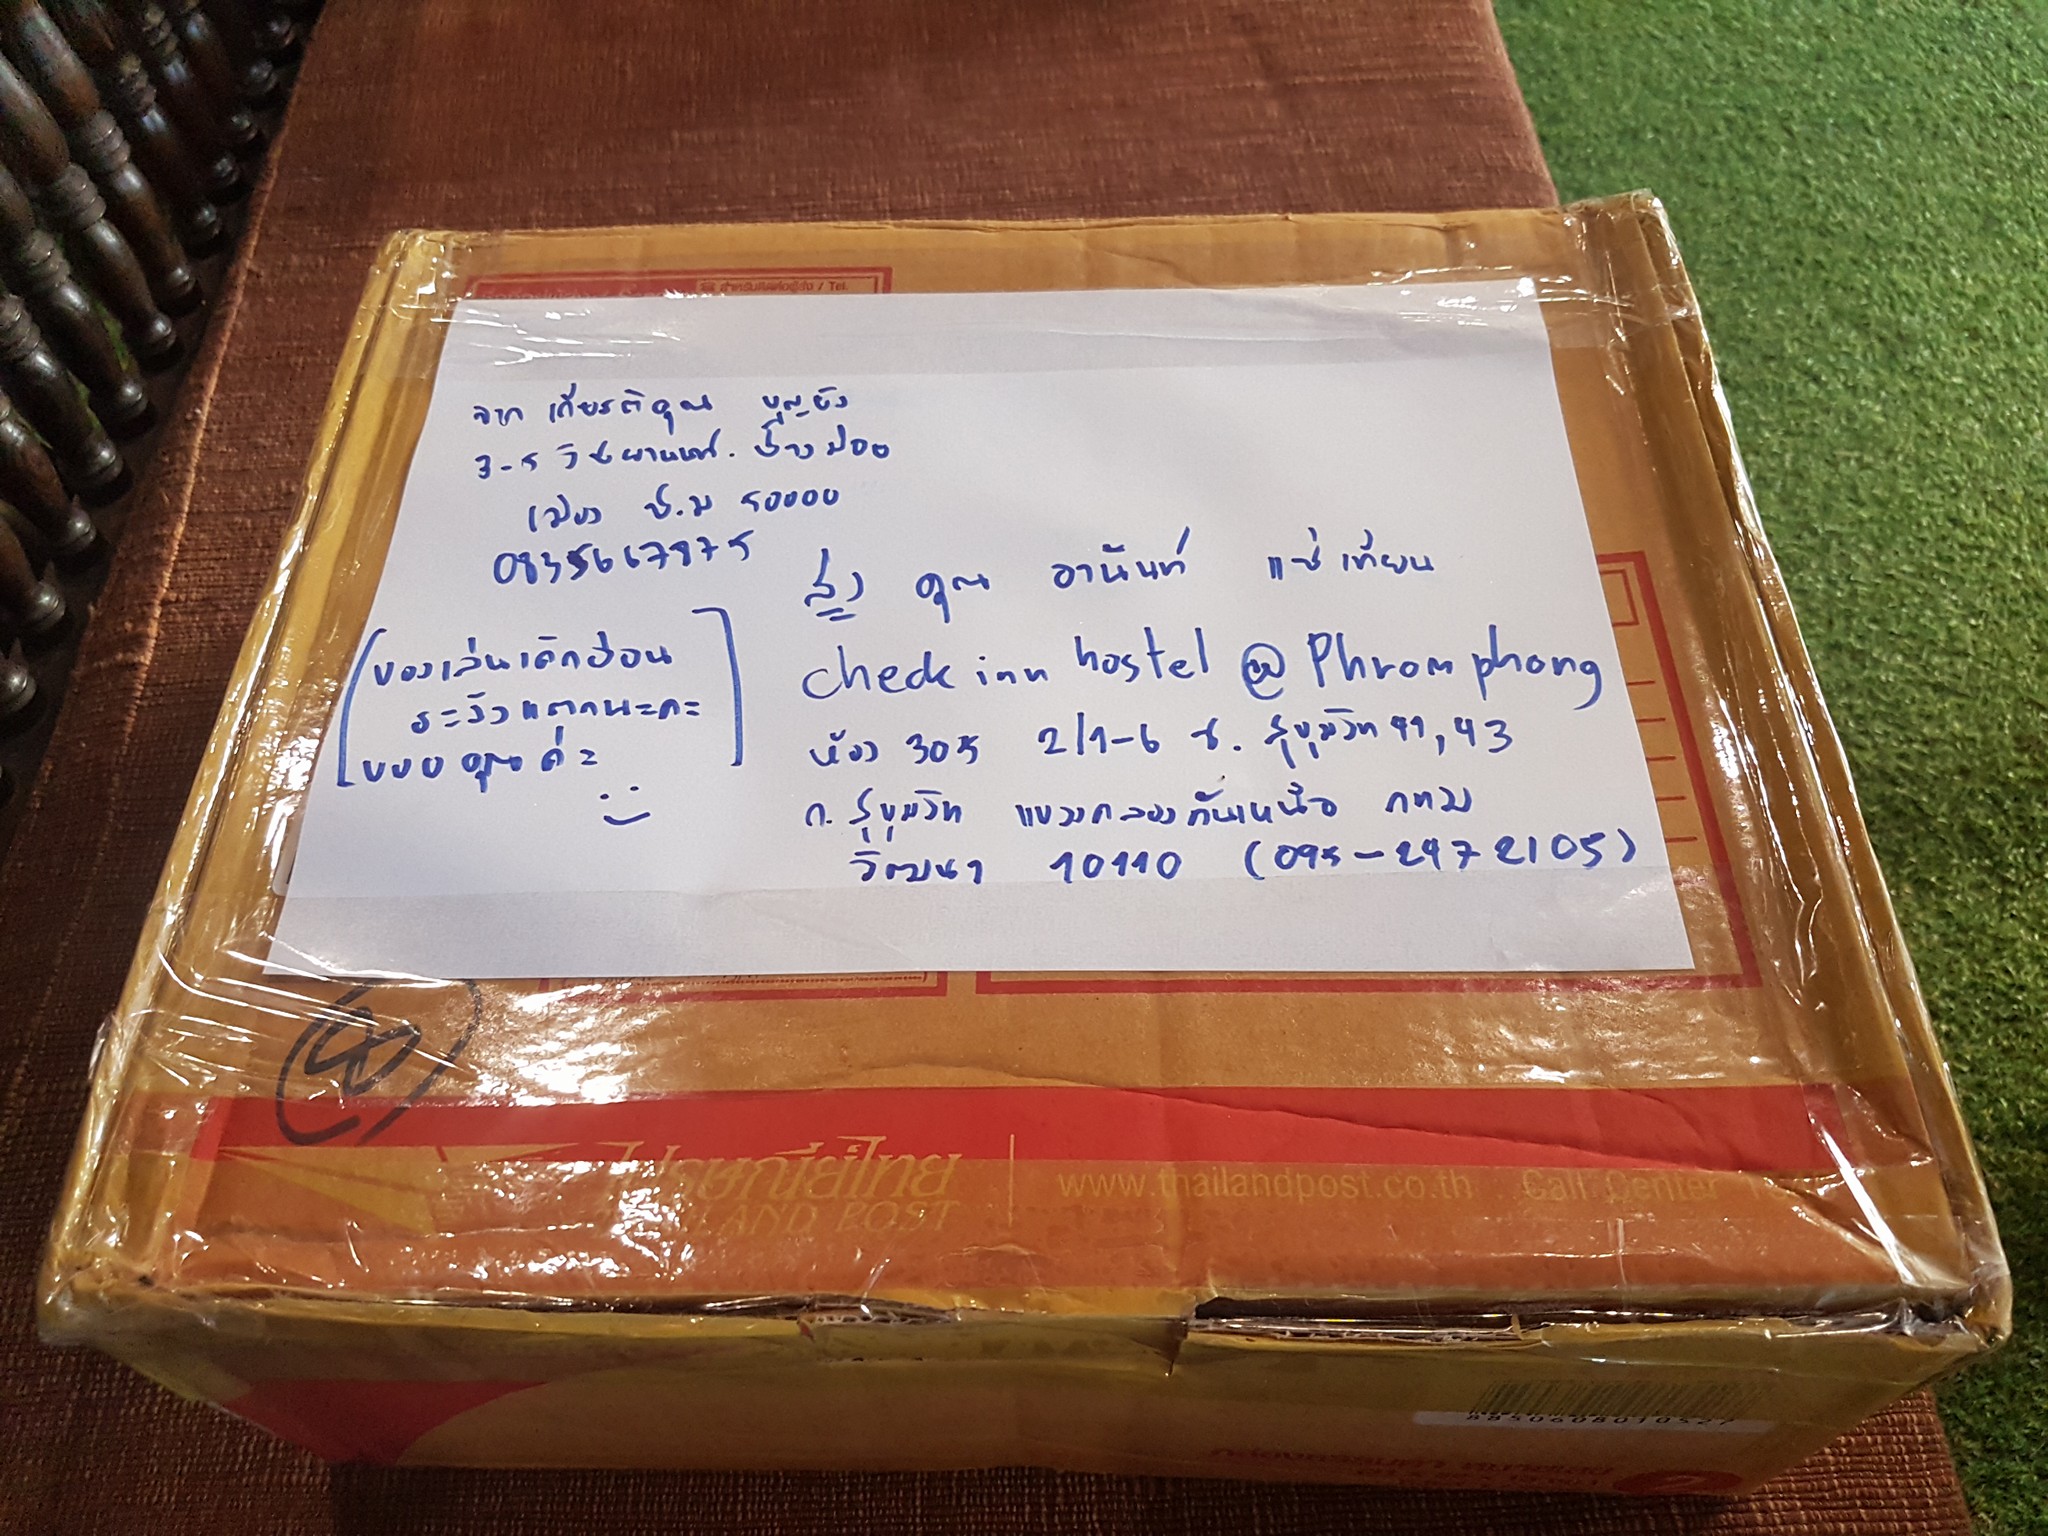 สำหรับติดต่อผู้ส่ง / Tel.
จาก เกียรติคุณ บุญยัง
3-5 วิชยานนท์. ช้างม่อย
เมือง ช.ม 50000
0835667975
ส่ง คุณ อานันท์ แซ่เทียน
check inn hostel @ Phrom phong
ห้อง 305 2/1-6 ซ. สุขุมวิท 41, 43
ถ. สุขุมวิท แขวงคลองตันเหนือ กทม
วัฒนา 10110 (095-2472105)
(ของเล่นเด็กอ่อน
ระวังแตกนะคะ
ขอบคุณค่ะ
ไปรษณีย์ไทย
LAND POST
www.thailandpost.co.th Call Center
8850608010527